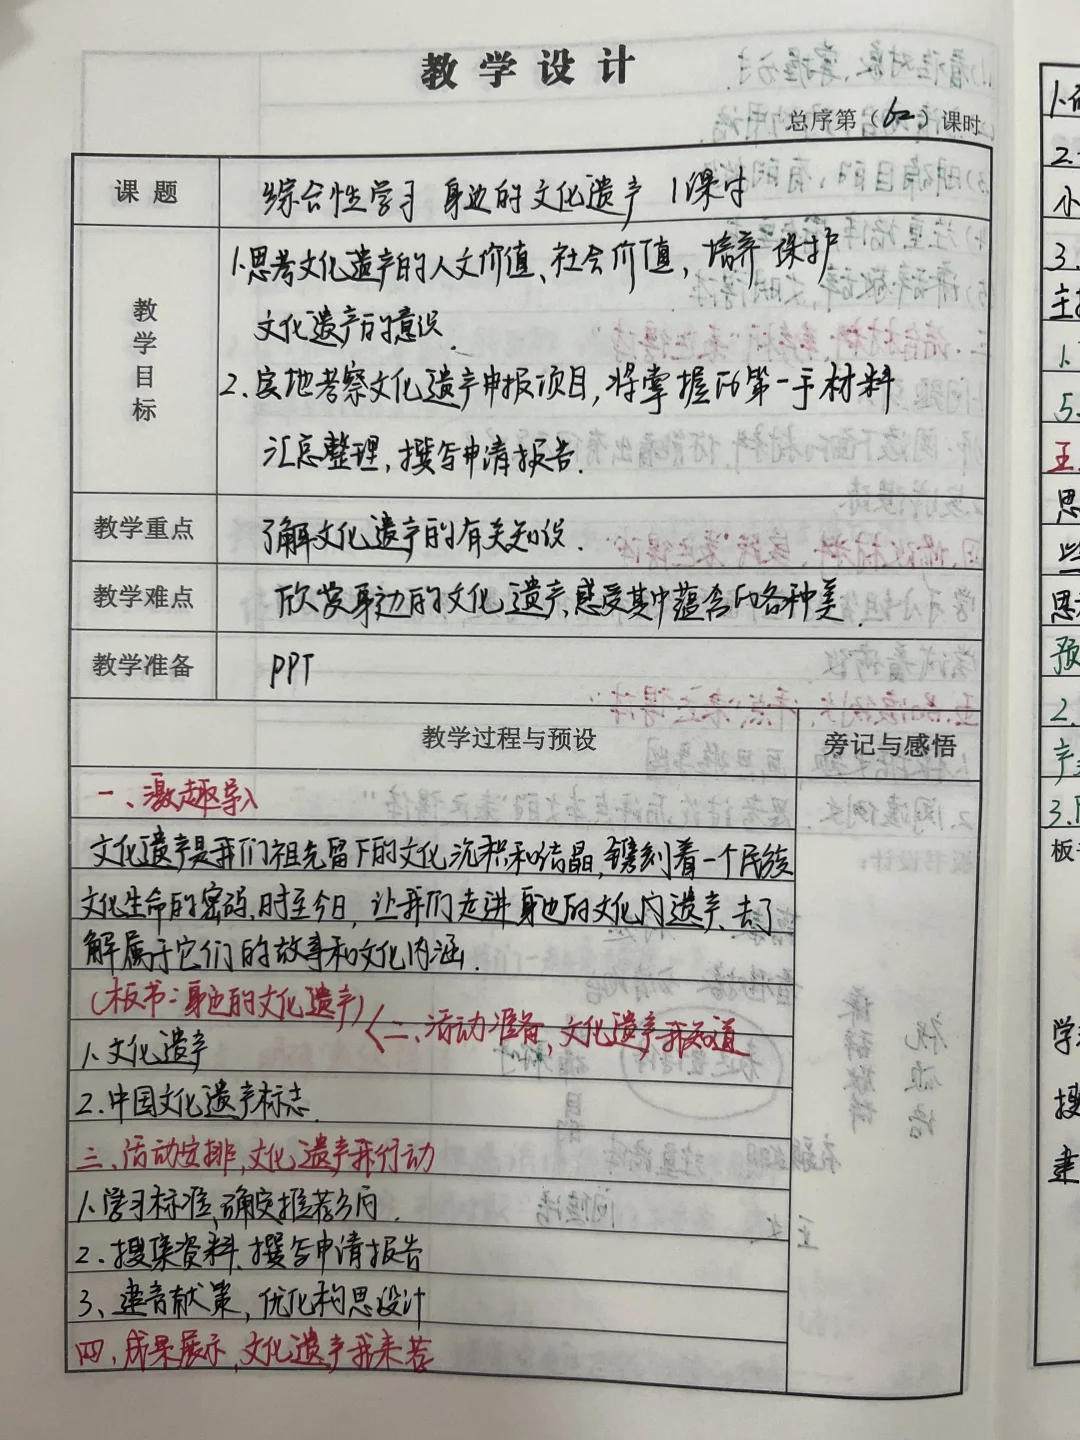 教学设计
总序第（62）课时
课题 综合性学习 身边的文化遗产 1课时
教学目标
1.思考文化遗产的人文价值、社会价值，培养保护
文化遗产的意识.
2.实地考察文化遗产申报项目，将掌握的第一手材料
汇总整理，撰写申请报告.
教学重点 了解文化遗产的有关知识.
教学难点 欣赏身边的文化遗产，感受其中蕴含的各种美.
教学准备 PPT
教学过程与预设 旁记与感悟
一、激趣导入
文化遗产是我们祖先留下的文化沉积和结晶，镌刻着一个民族
文化生命的密码，时至今日，让我们走进身边的文化内遗产，去了
解属于它们的故事和文化内涵.
（板书：身边的文化遗产）
二、活动准备，文化遗产我知道
1、文化遗产
2.中国文化遗产标志.
三、活动安排，文化遗产我行动
1、学习标准，确定推荐方向.
2.搜集资料、撰写申请报告
3、建言献策，优化构思设计
四、成果展示，文化遗产我来荐
2.
小
3.
1.
5.
王
思
预
2.
产
3.
板
学
搜
建